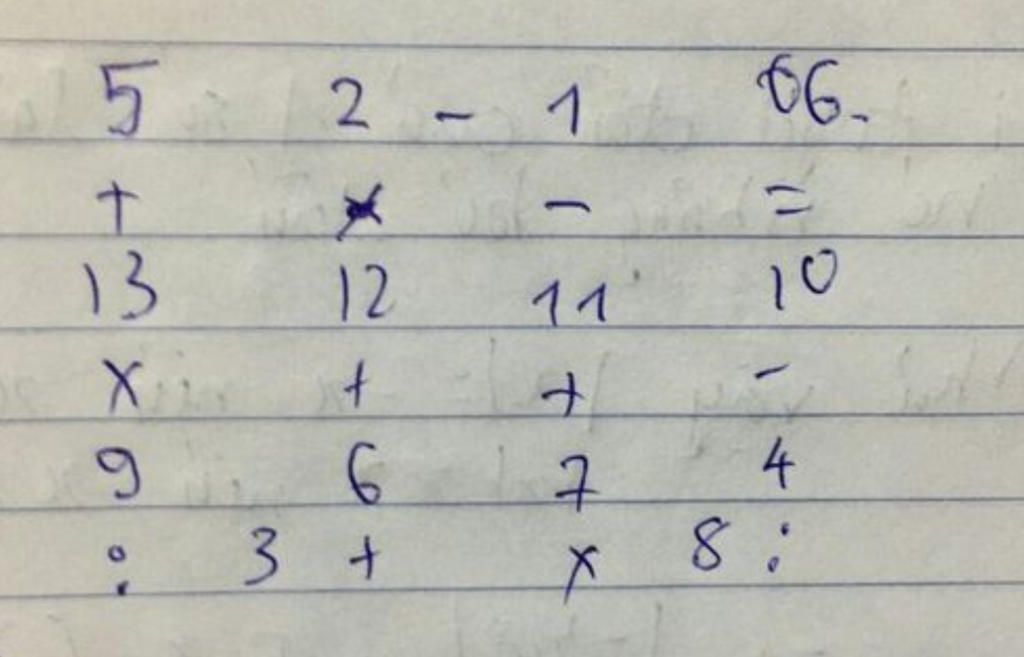 5 2 - 1 66.
+ × - =
13 12 11 10
× + + -
9 6 7 4
: 3 + × 8 :